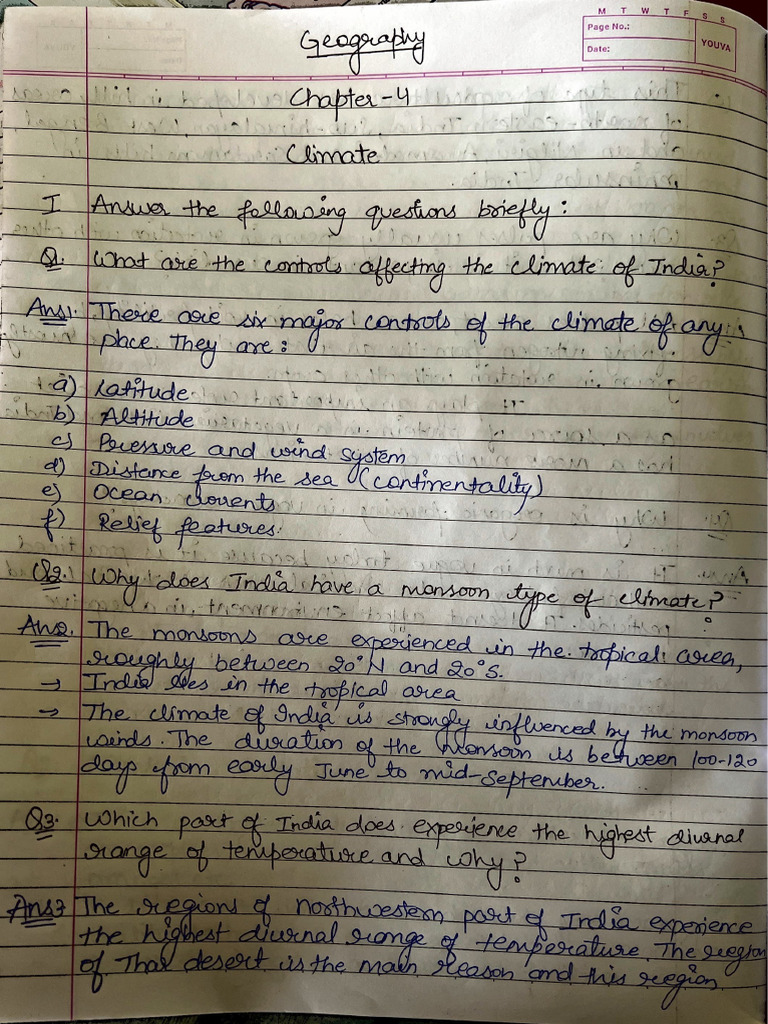 M T W T F S S
Page No.:
Date:
YOUVA
Geography
Chapter-4
Climate
I Answer the following questions briefly:
Q1. What are the controls affecting the climate of India?
Ans1. There are six major controls of the climate of any
place. They are:
a) Latitude
b) Altitude
c) Pressure and wind system
d) Distance from the sea (continentality)
e) Ocean currents
f) Relief features.
Q2. Why does India have a monsoon type of climate?
Ans2. The monsoons are experienced in the tropical area,
roughly between 20°N and 20°S.
→ India lies in the tropical area
→ The climate of India is strongly influenced by the monsoon
winds. The duration of the monsoon is between 100-120
days from early June to mid-September.
Q3. Which part of India does experience the highest diurnal
range of temperature and why?
Ans3 The regions of northwestern part of India experience
the highest diurnal range of temperature. The region
of Thar desert is the main reason and this region